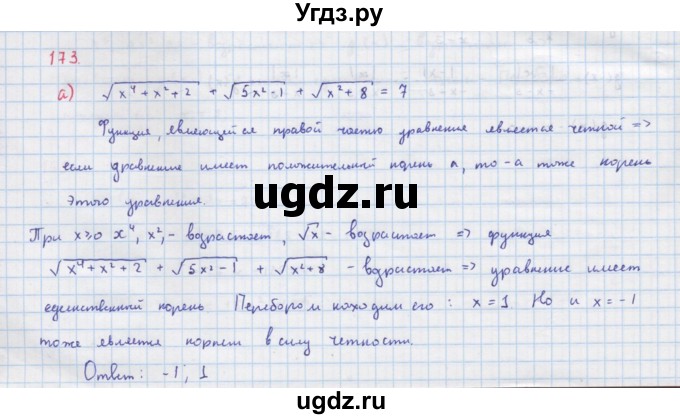 Угдз.ру
173.
а) √(x⁴ + x² + 2) + √(5x² - 1) + √(x² + 8) = 7
Функция, являющейся правой частью уравнения является четной =>
если уравнение имеет положительный корень a, то -a тоже корень
этого уравнения.
При x ≥ 0 x⁴, x², - возрастает, √x - возрастает => функция
√(x⁴ + x² + 2) + √(5x² - 1) + √(x² + 8) - возрастает => уравнение имеет
единственный корень Перебором находим его : x = 1. Но и x = -1
тоже является корнем в силу четности.
Ответ: -1; 1
ugdz.ru
ugdz.ru
ugdz.ru